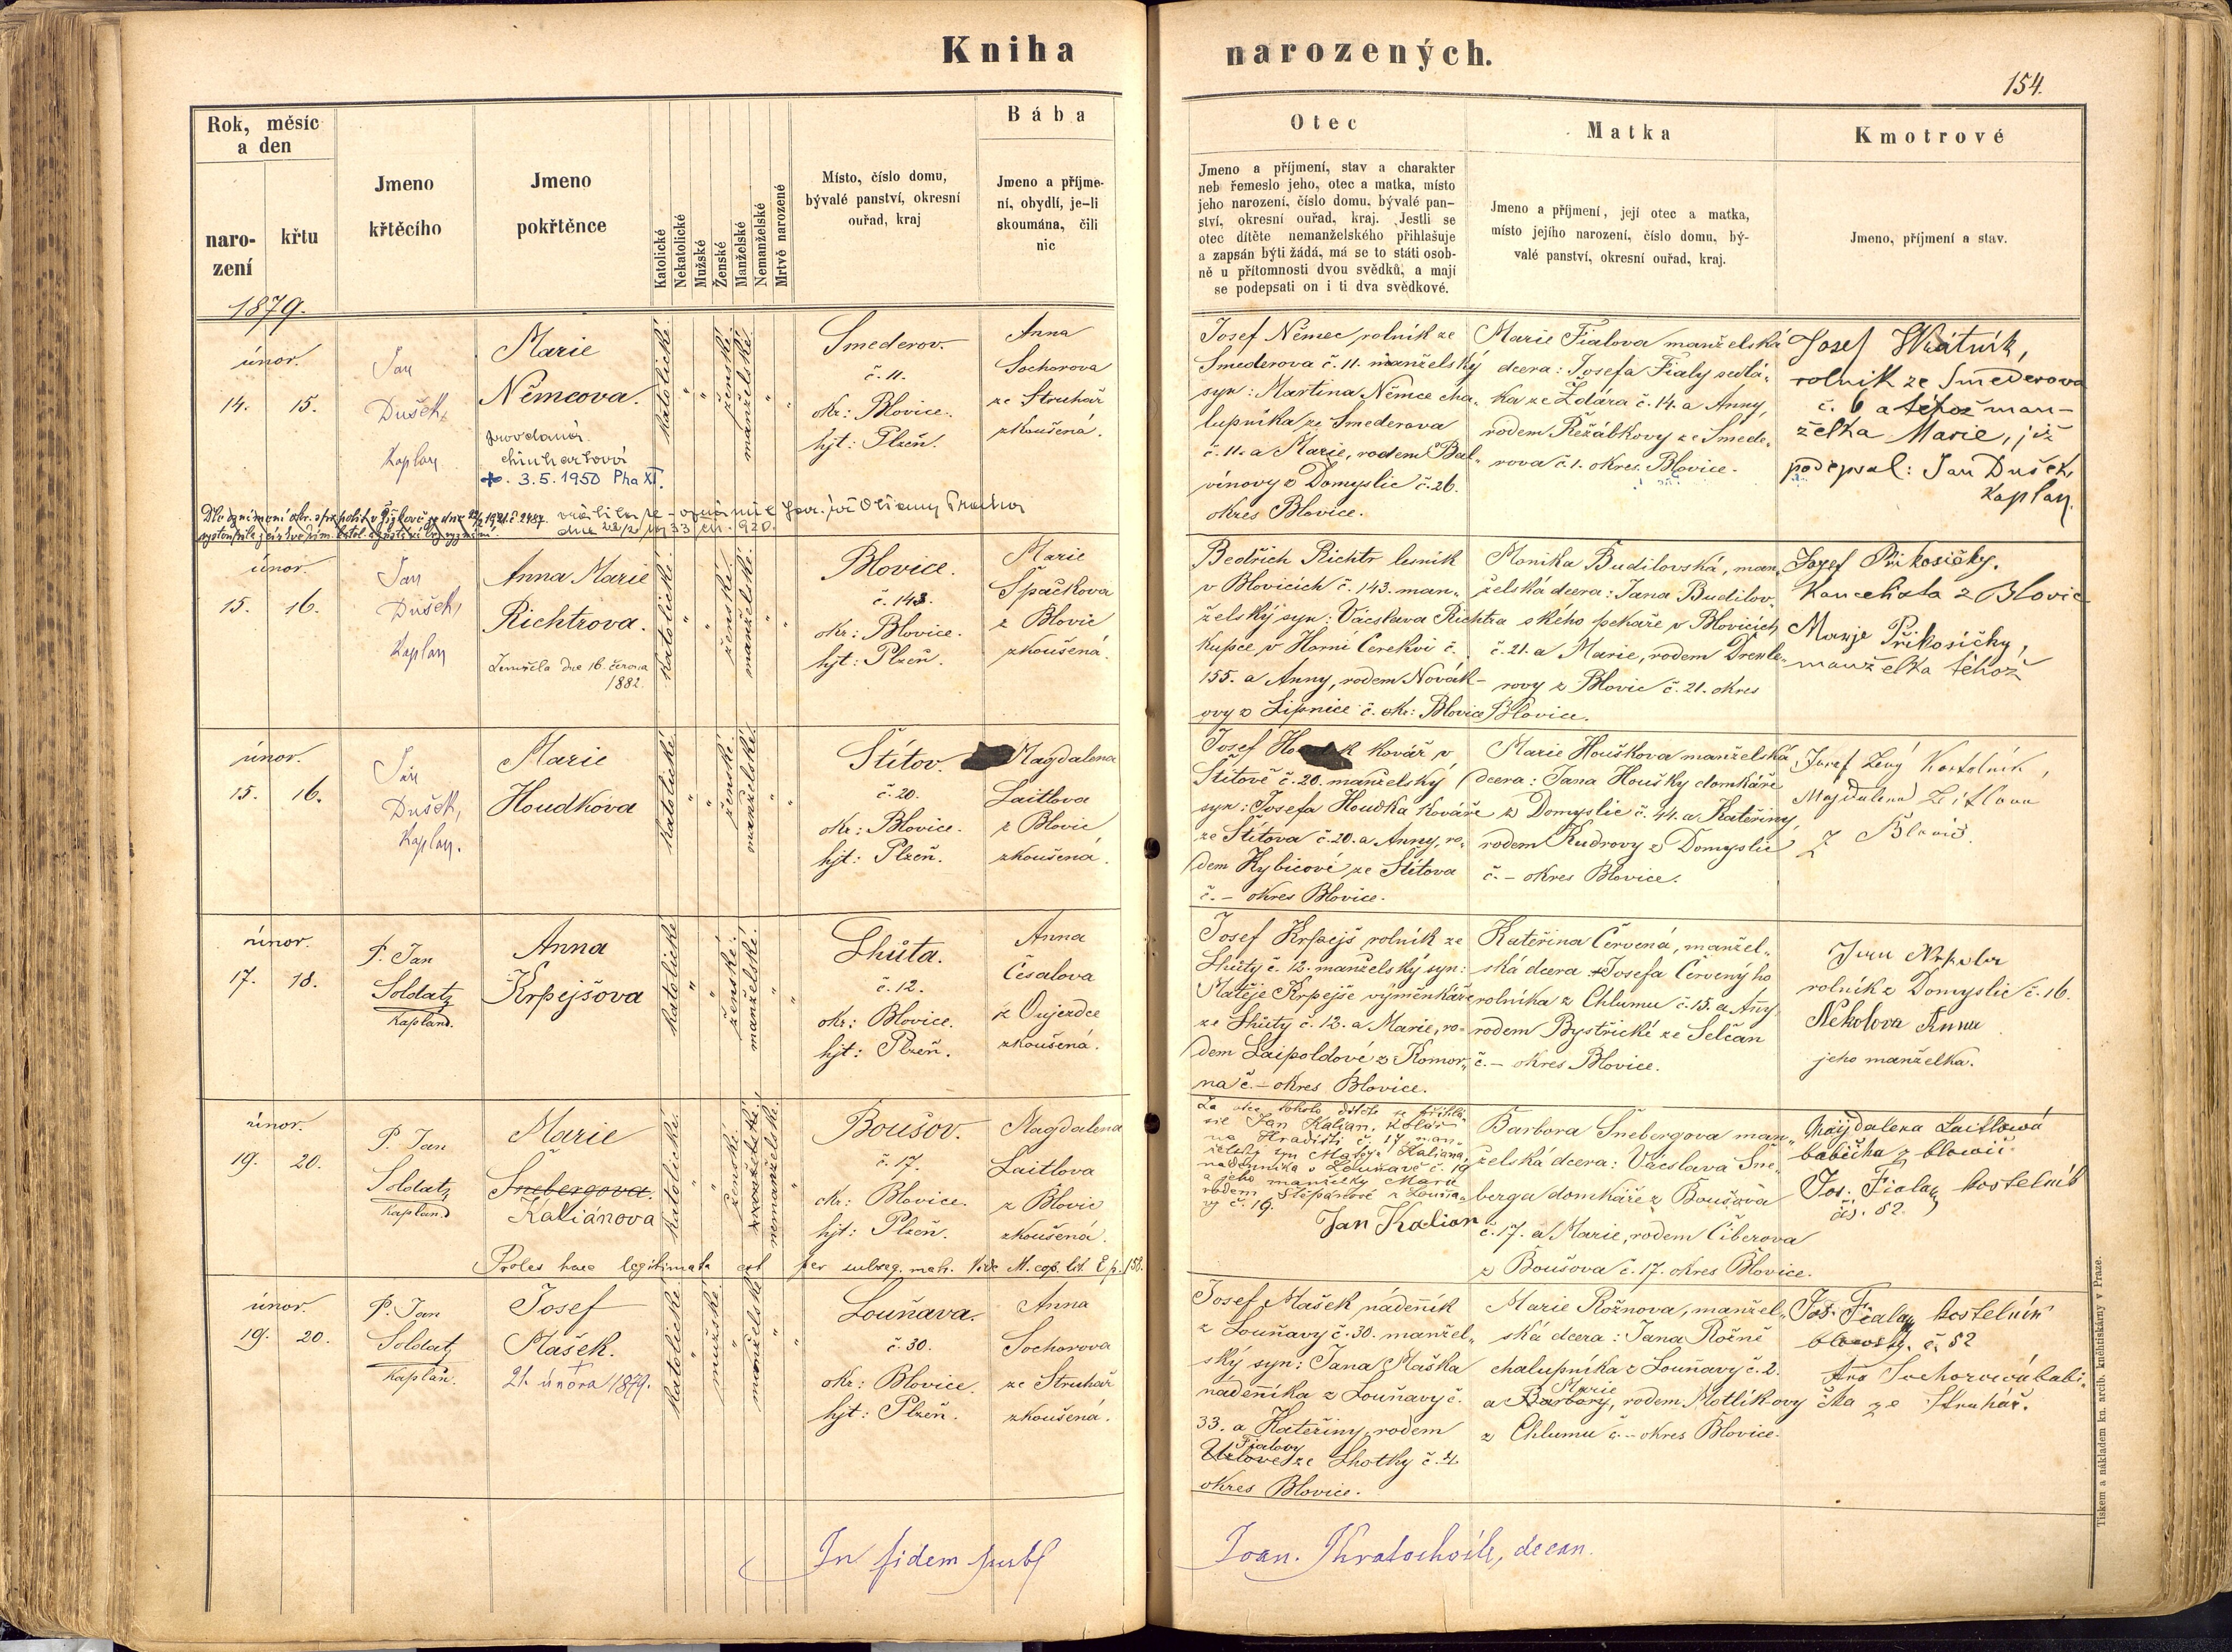 Kniha narozených.
154.
Rok, měsíc
a den
naro-
zení
křtu
Jmeno
křtěcího
Jmeno
pokřtěnce
Katolické
Nekatolické
Mužské
Ženské
Manželské
Nemanželské
Mrtvě narozené
Místo, číslo domu,
bývalé panství, okresní
ouřad, kraj
Bába
Jmeno a příjme-
ní, obydlí, je-li
skoumána, čili
nic
Otec
Jmeno a příjmení, stav a charakter
neb řemeslo jeho, otec a matka, místo
jeho narození, číslo domu, bývalé pan-
ství, okresní ouřad, kraj. Jestli se
otec dítěte nemanželského přihlašuje
a zapsán býti žádá, má se to státi osob-
ně u přítomnosti dvou svědků, a mají
se podepsati on i ti dva svědkové.
Matka
Jmeno a příjmení, její otec a matka,
místo jejího narození, číslo domu, bý-
valé panství, okresní ouřad, kraj.
Kmotrové
Jmeno, příjmení a stav.
1879.
únor.
14. 15.
Jan
Dušek,
Kaplan
Marie
Němcova.
provdaná
+. 3.5.1950 Pha XI.
katolické.
ženské.
manželské.
Smederov.
č. 11.
okr: Blovice.
hjt: Plzeň.
Anna
Sochorova
ze Struhař
zkoušená.
Josef Němec, rolník ze
Smederova č. 11. manželský
syn: Martina Němce cha-
lupníka ze Smederova
č. 11. a Marie, rodem Bal-
vínovy z Domyslic č. 26.
okres Blovice.
Marie Fialova manželská
dcera: Josefa Fialy sedlá-
ka ze Ždára č. 14. a Anny,
rodem Řežábkovy ze Smede-
rova č. 1. okres. Blovice.
Josef Wrátník,
rolník ze Smederova
č. 6 a téhož man-
želka Marie, již
podepsal: Jan Dušek,
Kaplan.
únor.
15. 16.
Jan
Dušek,
Kaplan
Anna Marie
Richtrova.
Zemřela dne 16. června
1882.
katolické.
ženské.
manželské.
Blovice.
č. 143.
okr: Blovice.
hjt: Plzeň.
Marie
Špačkova
z Blovic
zkoušená.
Bedřich Richtr lesník
v Blovicích č. 143. man-
želský syn: Vácslava Richtra
kupce v Horní Cerekvi č.
155. a Anny, rodem Novák-
ovy z Lipnice č. okr: Blovice
Monika Budilovská, man-
želská dcera: Jana Budilov-
ského pekaře v Blovicích
č. 21. a Marie, rodem Drexle-
rovy z Blovic č. 21. okres
Blovice.
Josef Přikosičky.
z Blovic
Marije Přikosičky,
manželka téhož
únor.
15. 16.
Jan
Dušek,
Kaplan.
Marie
Houdkova
katolické.
ženské.
manželské.
Štítov.
č. 20.
okr: Blovice.
hjt: Plzeň.
Magdalena
Laitlova
z Blovic
zkoušená.
Josef kovář v
Štítově č. 20. manželský
syn: Josefa Houdka kováře
ze Štítova č. 20. a Anny, ro-
dem Kybicové ze Štítova
č. – okres Blovice.
Marie Houškova manželská
dcera: Jana Houšky domkáře
z Domyslic č. 44. a Kateřiny,
rodem Kudrovy z Domyslic
č. – okres Blovice.
Josef Levý
Majdalena Leitlova
z Blovic
únor.
17. 18.
P. Jan
Soldatz
Kaplan.
Anna
Krpejšova
katolické
ženské.
manželské.
Lhůta.
č. 12.
okr: Blovice.
hjt: Plzeň.
Anna
Česalova
z Oujezdce
zkoušená.
Josef Krpejš rolník ze
Lhůty č. 12. manželský syn:
Matěje Krpejše výměnkáře
ze Lhůty č. 12. a Marie, ro-
dem Laipoldové z Komor-
na č. – okres Blovice.
Kateřina Červená, manžel-
ská dcera Josefa Červenýho
rolníka z Chlumu č. 15. a Anny
rodem Bystřické ze Selčan
č. – okres Blovice.
rolník z Domyslic č. 16.
Nekolova Anna
jeho manželka.
únor.
19. 20.
P. Jan
Soldatz
Kaplan
Marie
Šnebergova.
Kaliánova
katolické.
ženské.
manželské.
nemanželské.
Boušov.
č. 17.
okr: Blovice.
hjt: Plzeň.
Magdalena
Laitlova
z Blovic
zkoušená.
Za otce tohoto dítěte se přihlá-
sil Jan Kalian, kolář
na Hradišti č. 17, man-
želský syn Matěje Kaliana,
nádenníka v Louňavě č. 19
a jeho manželky Marie
rodem Štěpánové z Louňa-
vy č. 19.
Jan Kalian
Barbora Šnebergova man-
želská dcera: Vácslava Šne-
berga domkáře z Boušova
č. 17. a Marie, rodem Čiberova
z Boušova č. 17. okres Blovice.
Majdalena Laitlowá
babička z blowic
Jos. Fiala, kostelník
čís. 52.
Proles haec legitimata est per subseq. matr. Vide M. cop. lit. E p. 158.
únor.
19. 20.
P. Jan
Soldatz
Kaplan.
Josef
Mašek.
21. února 1879.
katolické
mužské.
manželské
Louňava.
č. 30.
okr: Blovice.
hjt: Plzeň.
Anna
Sochorova
ze Struhař
zkoušená.
Josef Mašek, nádeník
z Louňavy č. 30. manžel-
ský syn: Jana Maška
nádeníka z Louňavy č.
33. a Kateřiny, rodem
Fialovy
ze Lhotky č. 4.
okres Blovice.
Marie Rožnova, manžel-
ská dcera: Jana Rožně
chalupníka z Louňavy č. 2.
Marie
a Barbory, rodem Motlíkovy
z Chlumu č. – okres Blovice.
Jos. Fiala, kostelník
č. 52
Ana Sochorová babi-
čka ze Struhář.
In fidem
Joan. Kratochvíle, decan.
Tiskem a nákladem kn. arcib. knihtiskárny v Praze.